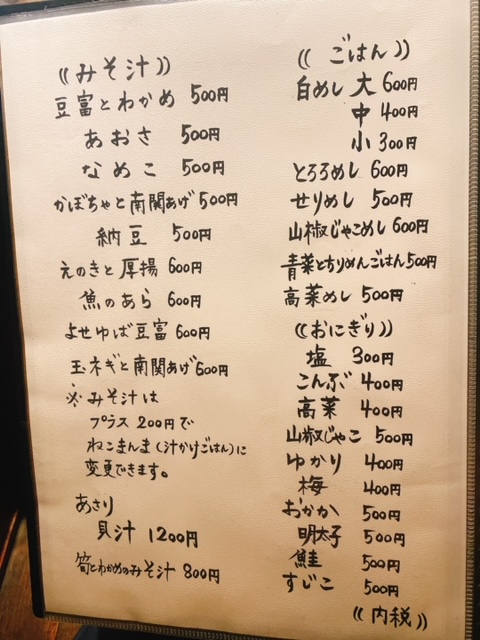 ((みそ汁))
豆富とわかめ 500円
あおさ 500円
なめこ 500円
かぼちゃと南関あげ 500円
納豆 500円
えのきと厚揚 600円
魚のあら 600円
よせゆば豆富 600円
玉ネギと南関あげ 600円
※みそ汁は
プラス 200円で
ねこまんま(汁かけごはん)に
変更できます。
あさり
貝汁 1200円
筍とわかめのみそ汁 800円
((ごはん))
白めし 大 600円
中 400円
小 300円
とろろめし 600円
せりめし 500円
山椒じゃこめし 600円
青菜とちりめんごはん 500円
高菜めし 500円
((おにぎり))
塩 300円
こんぶ 400円
高菜 400円
山椒じゃこ 500円
ゆかり 400円
梅 400円
おかか 500円
明太子 500円
鮭 500円
すじこ 500円
((内税))